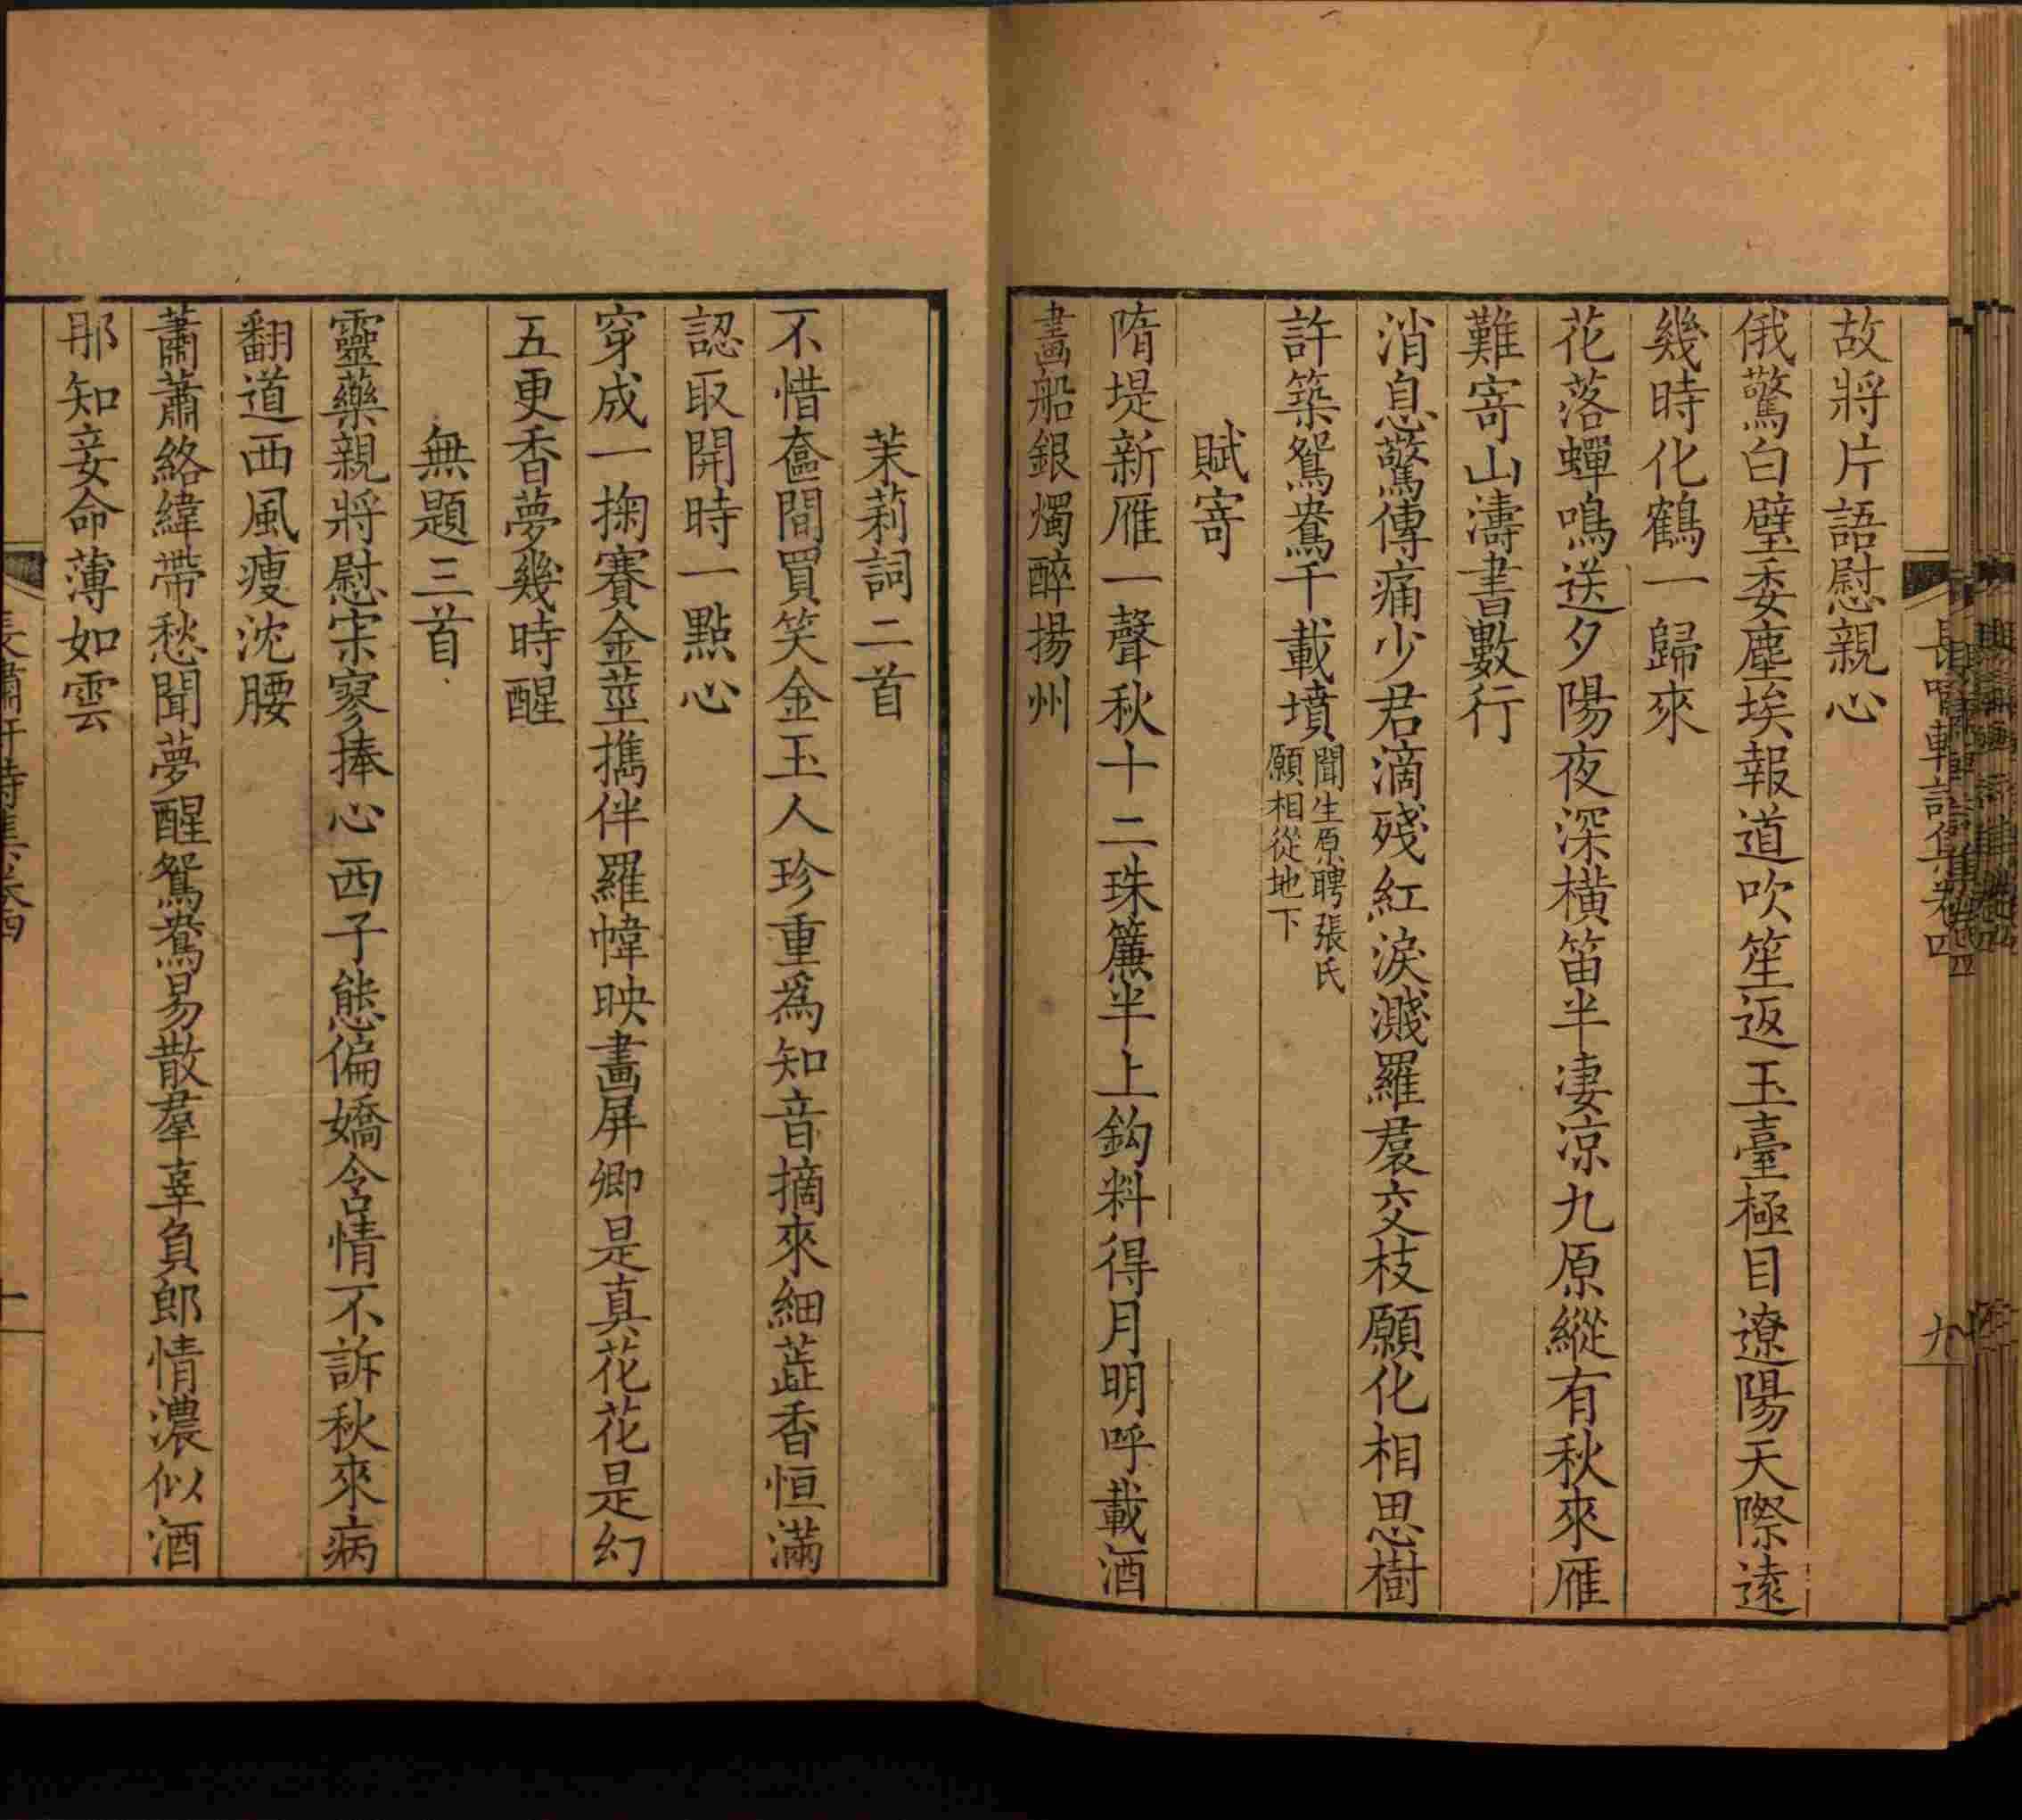 故將片語慰親心
俄驚白璧委塵埃報道吹笙返玉臺極目遼陽天際遠
幾時化鶴一歸來
花落蟬鳴送夕陽夜深橫笛半淒凉九原縱有秋來雁
難寄山濤書數行
消息驚傳痛少君滴殘紅淚濺羅裙交枝願化相思樹
許築鴛鴦千載墳
聞生原聘張氏
願相從地下
賦寄
隋堤新雁一聲秋十二珠簾半上鈎料得月明呼載酒
畫船銀燭醉揚州
茉莉詞二首
不惜奩間買笑金玉人珍重爲知音摘來細蕋香恒滿
認取開時一點心
穿成一掬賽金莖攜伴羅幃映畫屏卿是真花花是幻
五更香夢幾時醒
無題三首
靈藥親將慰寂寥捧心西子態偏嬌含情不訴秋來病
翻道西風瘦沈腰
蕭蕭絡緯帶愁聞夢醒鴛鴦易散羣辜負郎情濃似酒
那知妾命薄如雲
長嘯軒詩集卷四
九